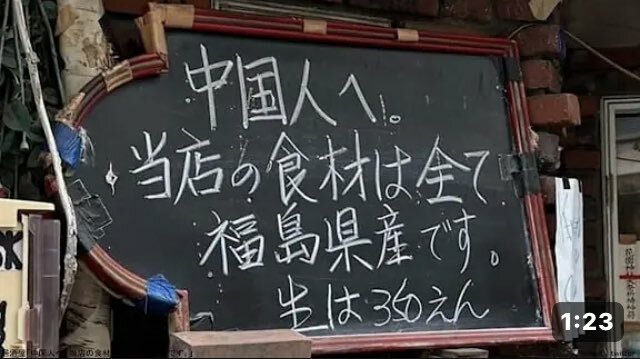 中国人へ!。
当店の食材は全て
福島県産です。
生は350えん
1:23